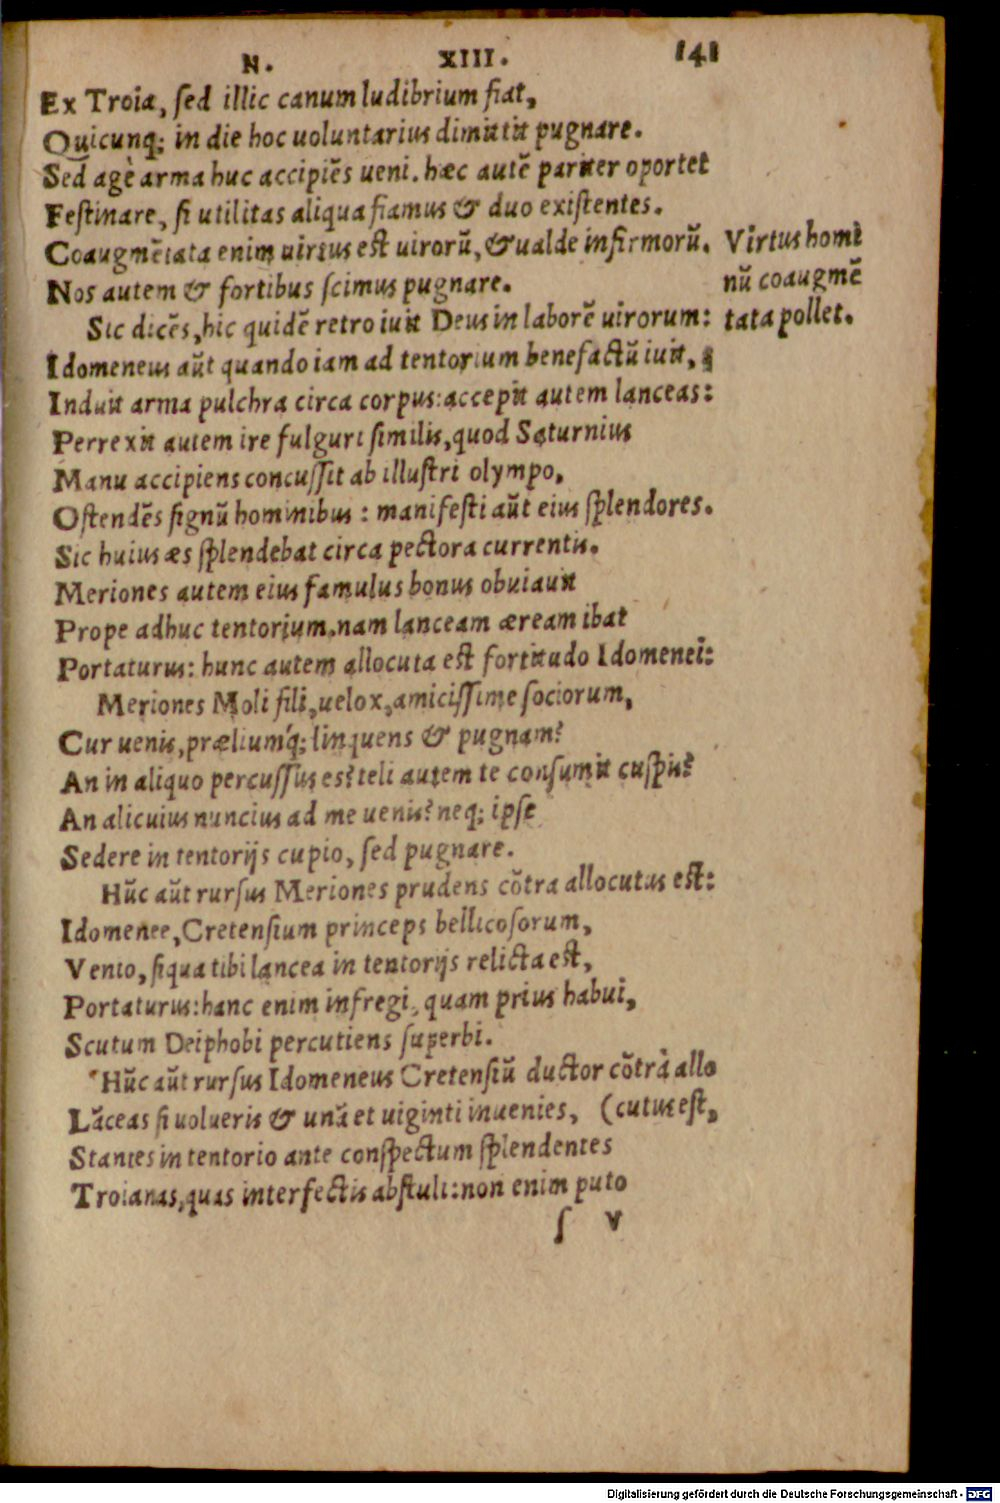 N. XIII. 141
Ex Troia, ſed illic canum ludibrium fiat,
Quicunq; in die hoc uoluntarius dimittit pugnare.
Sed agè arma huc accipiẽs ueni. hæc autẽ pariter oportet
Feſtinare, ſi utilitas aliqua fiamus & duo exiſtentes.
Coaugmẽtata enim uirtus eſt uirorũ, & ualde infirmorũ.
Nos autem & fortibus ſcimus pugnare.
Virtus homi
nũ coaugmẽ
tata pollet.
Sic dicẽs, hic quidẽ retro iuit Deus in laborẽ uirorum:
Idomeneus aũt quando iam ad tentorium benefactũ iuit,
Induit arma pulchra circa corpus: accepit autem lanceas:
Perrexit autem ire fulguri ſimilis, quod Saturnius
Manu accipiens concuſſit ab illuſtri olympo,
Oſtendẽs ſignũ hominibus : manifeſti aũt eius ſplendores.
Sic huius æs ſplendebat circa pectora currentis.
Meriones autem eius famulus bonus obuiauit
Prope adhuc tentorium, nam lanceam æream ibat
Portaturus: hunc autem allocuta eſt fortitudo Idomenei:
Meriones Moli fili, uelox, amiciſſime ſociorum,
Cur uenis, prælium'q; linquens & pugnam?
An in aliquo percuſſus es? teli autem te conſumit cuſpis?
An alicuius nuncius ad me uenis? neq; ipſe
Sedere in tentorijs cupio, ſed pugnare.
Hũc aũt rurſus Meriones prudens cõtra allocutus eſt:
Idomenee, Cretenſium princeps bellicoſorum,
Venio, ſiqua tibi lancea in tentorijs relicta eſt,
Portaturus: hanc enim infregi, quam prius habui,
Scutum Deiphobi percutiens ſuperbi.
Hũc aũt rurſus Idomeneus Cretenſiũ ductor cõtrà allo
Lãceas ſi uolueris & unã et uiginti inuenies, (cutus eſt,
Stantes in tentorio ante conſpectum ſplendentes
Troianas, quas interfectis abſtuli: non enim puto
ſ v
Digitalisierung gefördert durch die Deutsche Forschungsgemeinschaft - DFG